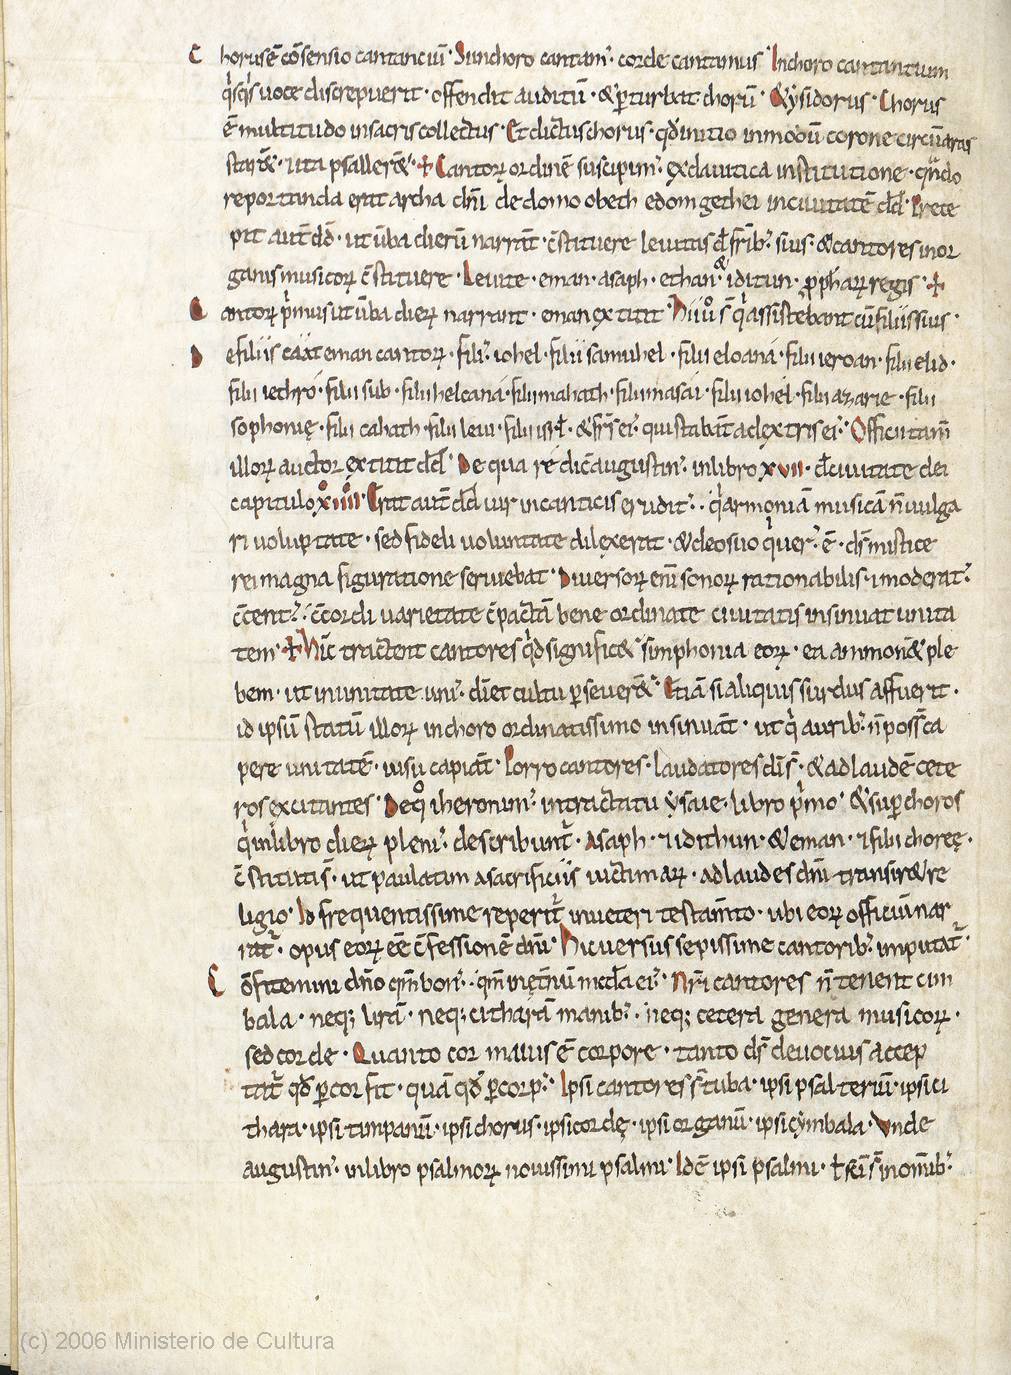 Chorus ē cōsensio cantanciū · Si in choro cantam᷒ · corde cantamus · In choro cantantium
q̍sq̍s uoce discrepuerit · offendit auditū · & ꝑturbat chorū · & ysidorus · Chorus
ē multitudo in sacris collectus · Et dictus chorus · qđ initio in modū corone circū aras
starē& · ⁊ ita psallerē& · Cantoꝝ ordinē suscipim᷒ · ex dauitica institutione · qn̄do
reportanda erat archa dn̄i de domo obeth edom gether in ciuitatē dđ · Prece
pit aut̄ dđ · ut ūba dierū narrāt · c̄stituere leuitas đ fr̄ib᷒ suis · & cantores in or
ganis musicoꝝ c̄stituere · Leuite · eman · asaph · ethan · & iditun · ꝓph̄aꝝ regis ·
Cantoꝝ p̍mus ut ūba dieꝝ narrant · eman extitit · Hii uͦ s̄ q̍ assistebant cū filiis suis ·
De filiis caat eman cantoꝝ · fili᷒ iohel · filii samuhel · filii eloana · filii ieroan · filii elid ·
filii iethro · filii sub · filii helcana · filii mahath · filii masai · filii iohel · filii azarie · filii
sophonię · filii cahath · filii leui · filii isrł · & fr̄s ei᷒ · qui stabāt ad extris ei᷒ · Officii tam̄
illoꝝ auctor extitit dđ · De qua re dic̄ augustin᷒ · in libro xvii · đ ciuitate dei
capitulo xiiii · Erat aut̄ dđ uir in canticis erudit᷒ · q̍ armoniā musicā n̄ uulga
ri uoluptate · sed fideli uoluntate dilexerat · & deo suo q̍ uer᷒ · ē · ds̄ mistice
rei magna figuratione seruiebat · Diuersoꝝ eni᷒ sonoꝝ rationabilis · ⁊ moderat᷒ ·
c̄cent᷒ · c̄cordi uarietate c̄pactā bene ordinate ciuitatis insinuat unita
tem · Hic̄ tractent cantores q̍d signific& simphonia eoꝝ · ea ammon& ple
bem · ut in unitate uni᷒ · diuēt cultu ꝑseuer& · Etiā si aliquis surdus affuerit ·
id ipsū statū illoꝝ in choro ordinatissimo insinuāt · ut q̍ aurib᷒ n̄ poss̄ ca
pere unitatē · uisu capiāt · Porro cantores · laudatores di᷒ s̄ · & ad laudē cete
ros excitantes · De qͦ iheronim᷒ · in tractatu ysaie · libro p̍mo · & suꝑ choros
q̍ in libro dieꝝ pleni᷒ · describunt᷑ · asaph · ⁊ idithun · & eman · ⁊ filii choreę ·
c̄stitutis · ut paulatim a sacrificiis uictimaꝝ · ad laudes dn̄i transir& re
ligio · Id frequentissime reperit᷑ in ueteri testam̄to · ubi eoꝝ officiū nar
rat᷑ · opus eoꝝ eē c̄fessionē dn̄i · Hic uersus sepissime cantorib᷒ imputat᷑ ·
Cōfitemini dn̄o qm̄ bon᷒ · qm̄ in ęt̄nū mc̄đa ei᷒ · Nr̄i cantores n̄ tenent cim
bala · neq; lirā · neq; citharā manib᷒ · neq; cetera genera musicoꝝ ·
sed corde · Quanto cor maius ē corpore · tanto ds̄ deuocius accep
tat᷑ qđ ꝑ cor fit · quā qđ ꝑ corp᷒ · Ipsi cantores s̄ tuba · ipsi psalterium · ipsi ci
thara · ipsi timpanū · ipsi chorus · ipsi cordę · ipsi organū · ipsi cymbala · Vnde
augustin᷒ · in libro psalmoꝝ nouissimi psalmi · psalmi · in om̄ib᷒
(c) 2006 Ministerio de Cultura